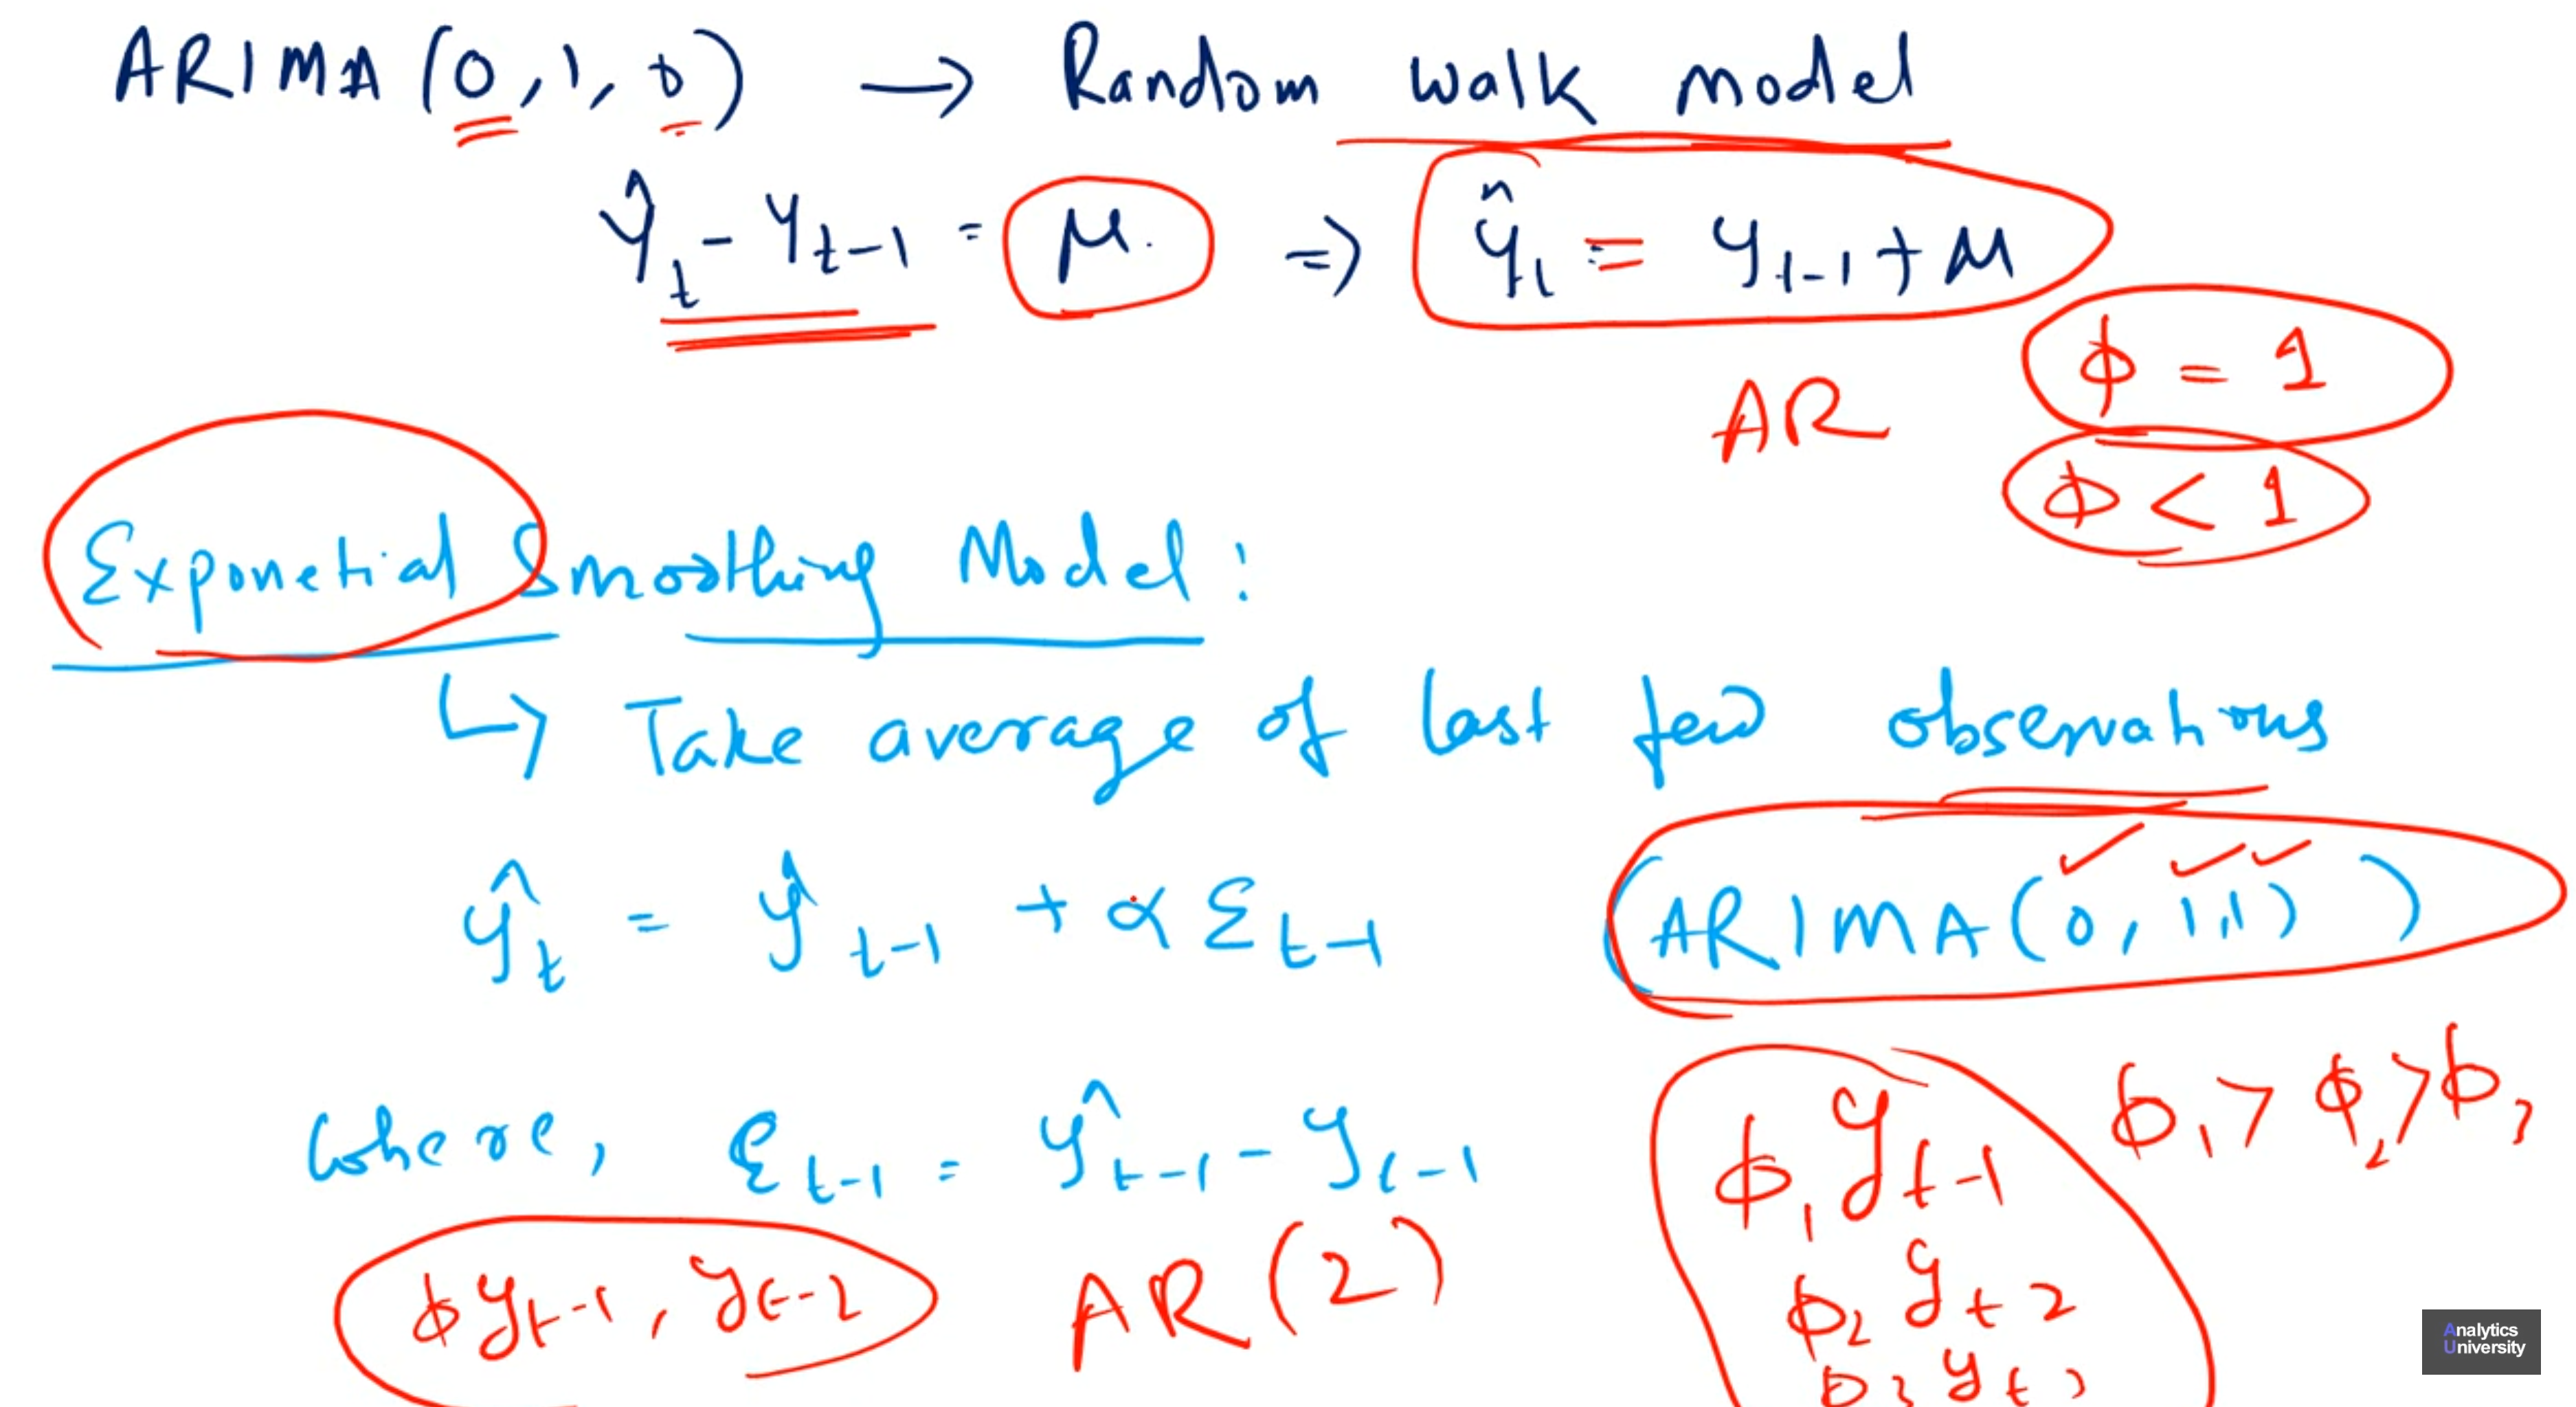 ARIMA (0, 1, 0) → Random walk model
Ŷt - Yt-1 = μ. ⇒ ŷ1 = y1-1 + μ
AR ϕ = 1
ϕ < 1
Exponetial Smoothing Model:
↳ Take average of last few observations
ŷt = ŷt-1 + αƐt-1 (ARIMA(0, 1,1))
where, Ɛt-1 = ŷt-1 - yt-1
ϕ1 yt-1 ϕ1 > ϕ2 > ϕ3
ϕyt-1, yt-2 AR(2)
ϕ2 yt 2
ϕ3 yt
Analytics
University